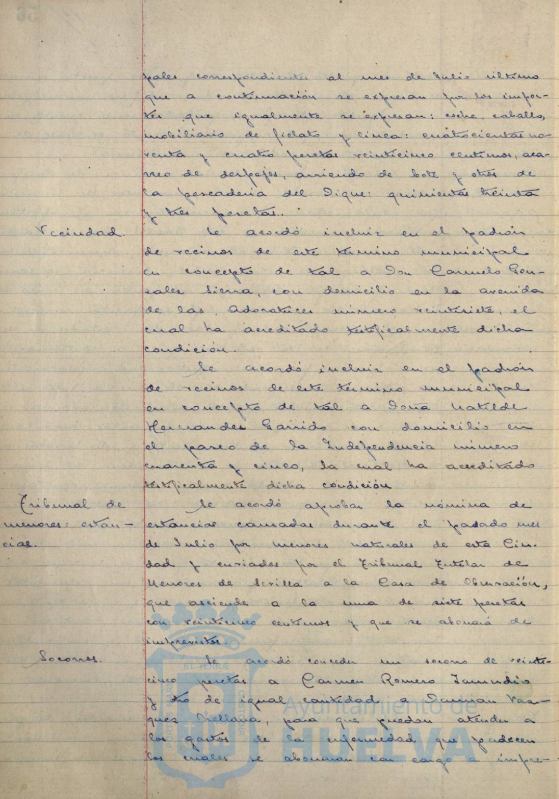 pales correspondientes al mes de Julio último
que a continuación se expresan por los impor-
tes que igualmente se expresan: coche, caballo,
mobiliario de fielato y linea: cuatrocientas no-
venta y cuatro pesetas veinticinco centimos, aca-
rreo de despojos, arriendo de bote y otros de
la pescaderia del Dique: quinientas treinta
y tres pesetas.
Vecindad. Se acordó incluir en el padrón
de vecinos de este término municipal
en concepto de tal a Don Carmelo Gon-
zalez Sierra, con domicilio en la avenida
de las Adoratrices número veintisiete, el
cual ha acreditado testificalmente dicha
condición.
Se acordó incluir en el padrón
de vecinos de este término municipal
en concepto de tal a Doña Matilde
Hernandez Garrido con domicilio en
el paseo de la Independencia número
cuarenta y cinco, la cual ha acreditado
testificalmente dicha condición
Tribunal de Se acordó aprobar la nómina de
menores: estan- estancias causadas durante el pasado mes
cias. de Julio por menores naturales de esta Ciu-
dad y enviados por el Tribunal Tutelar de
Menores de Sevilla a la Casa de Observación,
que asciende a la suma de siete pesetas
con veinticinco centimos y que se abonará de
imprevistos.
Socorros. Se acordó conceder un socorro de veinti-
cinco pesetas a Carmen Romero
y otro de igual cantidad a Vaz-
quez Orellana, para que puedan atender a
los gastos de la enfermedad que padecen
los cuales se abonaran con cargo a impre-
Ayuntamiento de
HUELVA